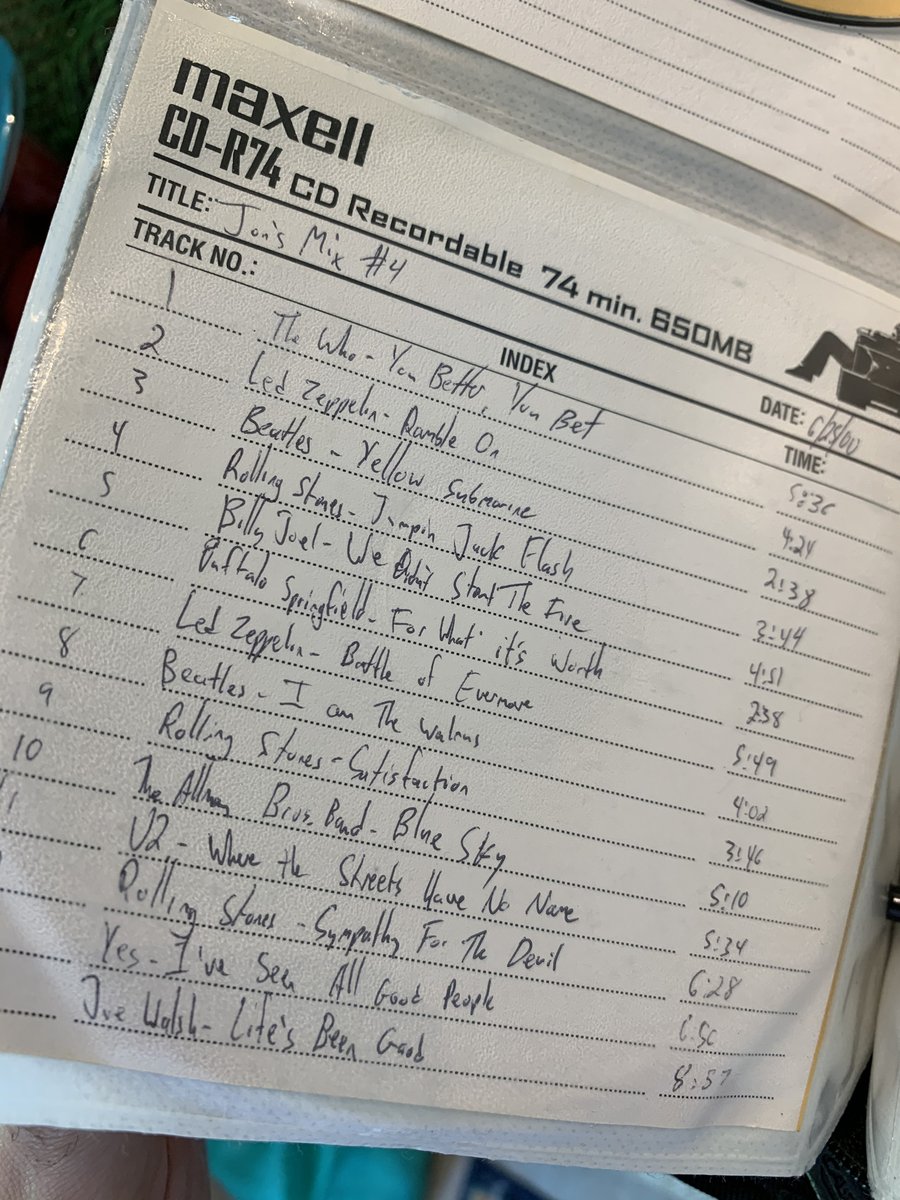 maxell
CD-R74 CD Recordable 74 min. 650MB
TITLE: Jon's Mix #4
DATE: 6/28/00
TRACK NO.: INDEX TIME:
1 The Who - You Better, You Bet 5:36
2 Led Zeppelin - Ramble On 4:24
3 Beatles - Yellow Submarine 2:38
4 Rolling Stones - Jumpin Jack Flash 3:44
5 Billy Joel - We Didn't Start The Fire 4:51
6 Buffalo Springfield - For What it's Worth 2:38
7 Led Zeppelin - Battle of Evermore 5:49
8 Beatles - I am The Walrus 4:02
9 Rolling Stones - Satisfaction 3:46
10 The Allman Bros. Band - Blue Sky 5:10
11 U2 - Where the Streets Have No Name 5:34
Rolling Stones - Sympathy For The Devil 6:28
Yes - I've Seen All Good People 6:56
Joe Walsh - Life's Been Good 8:57